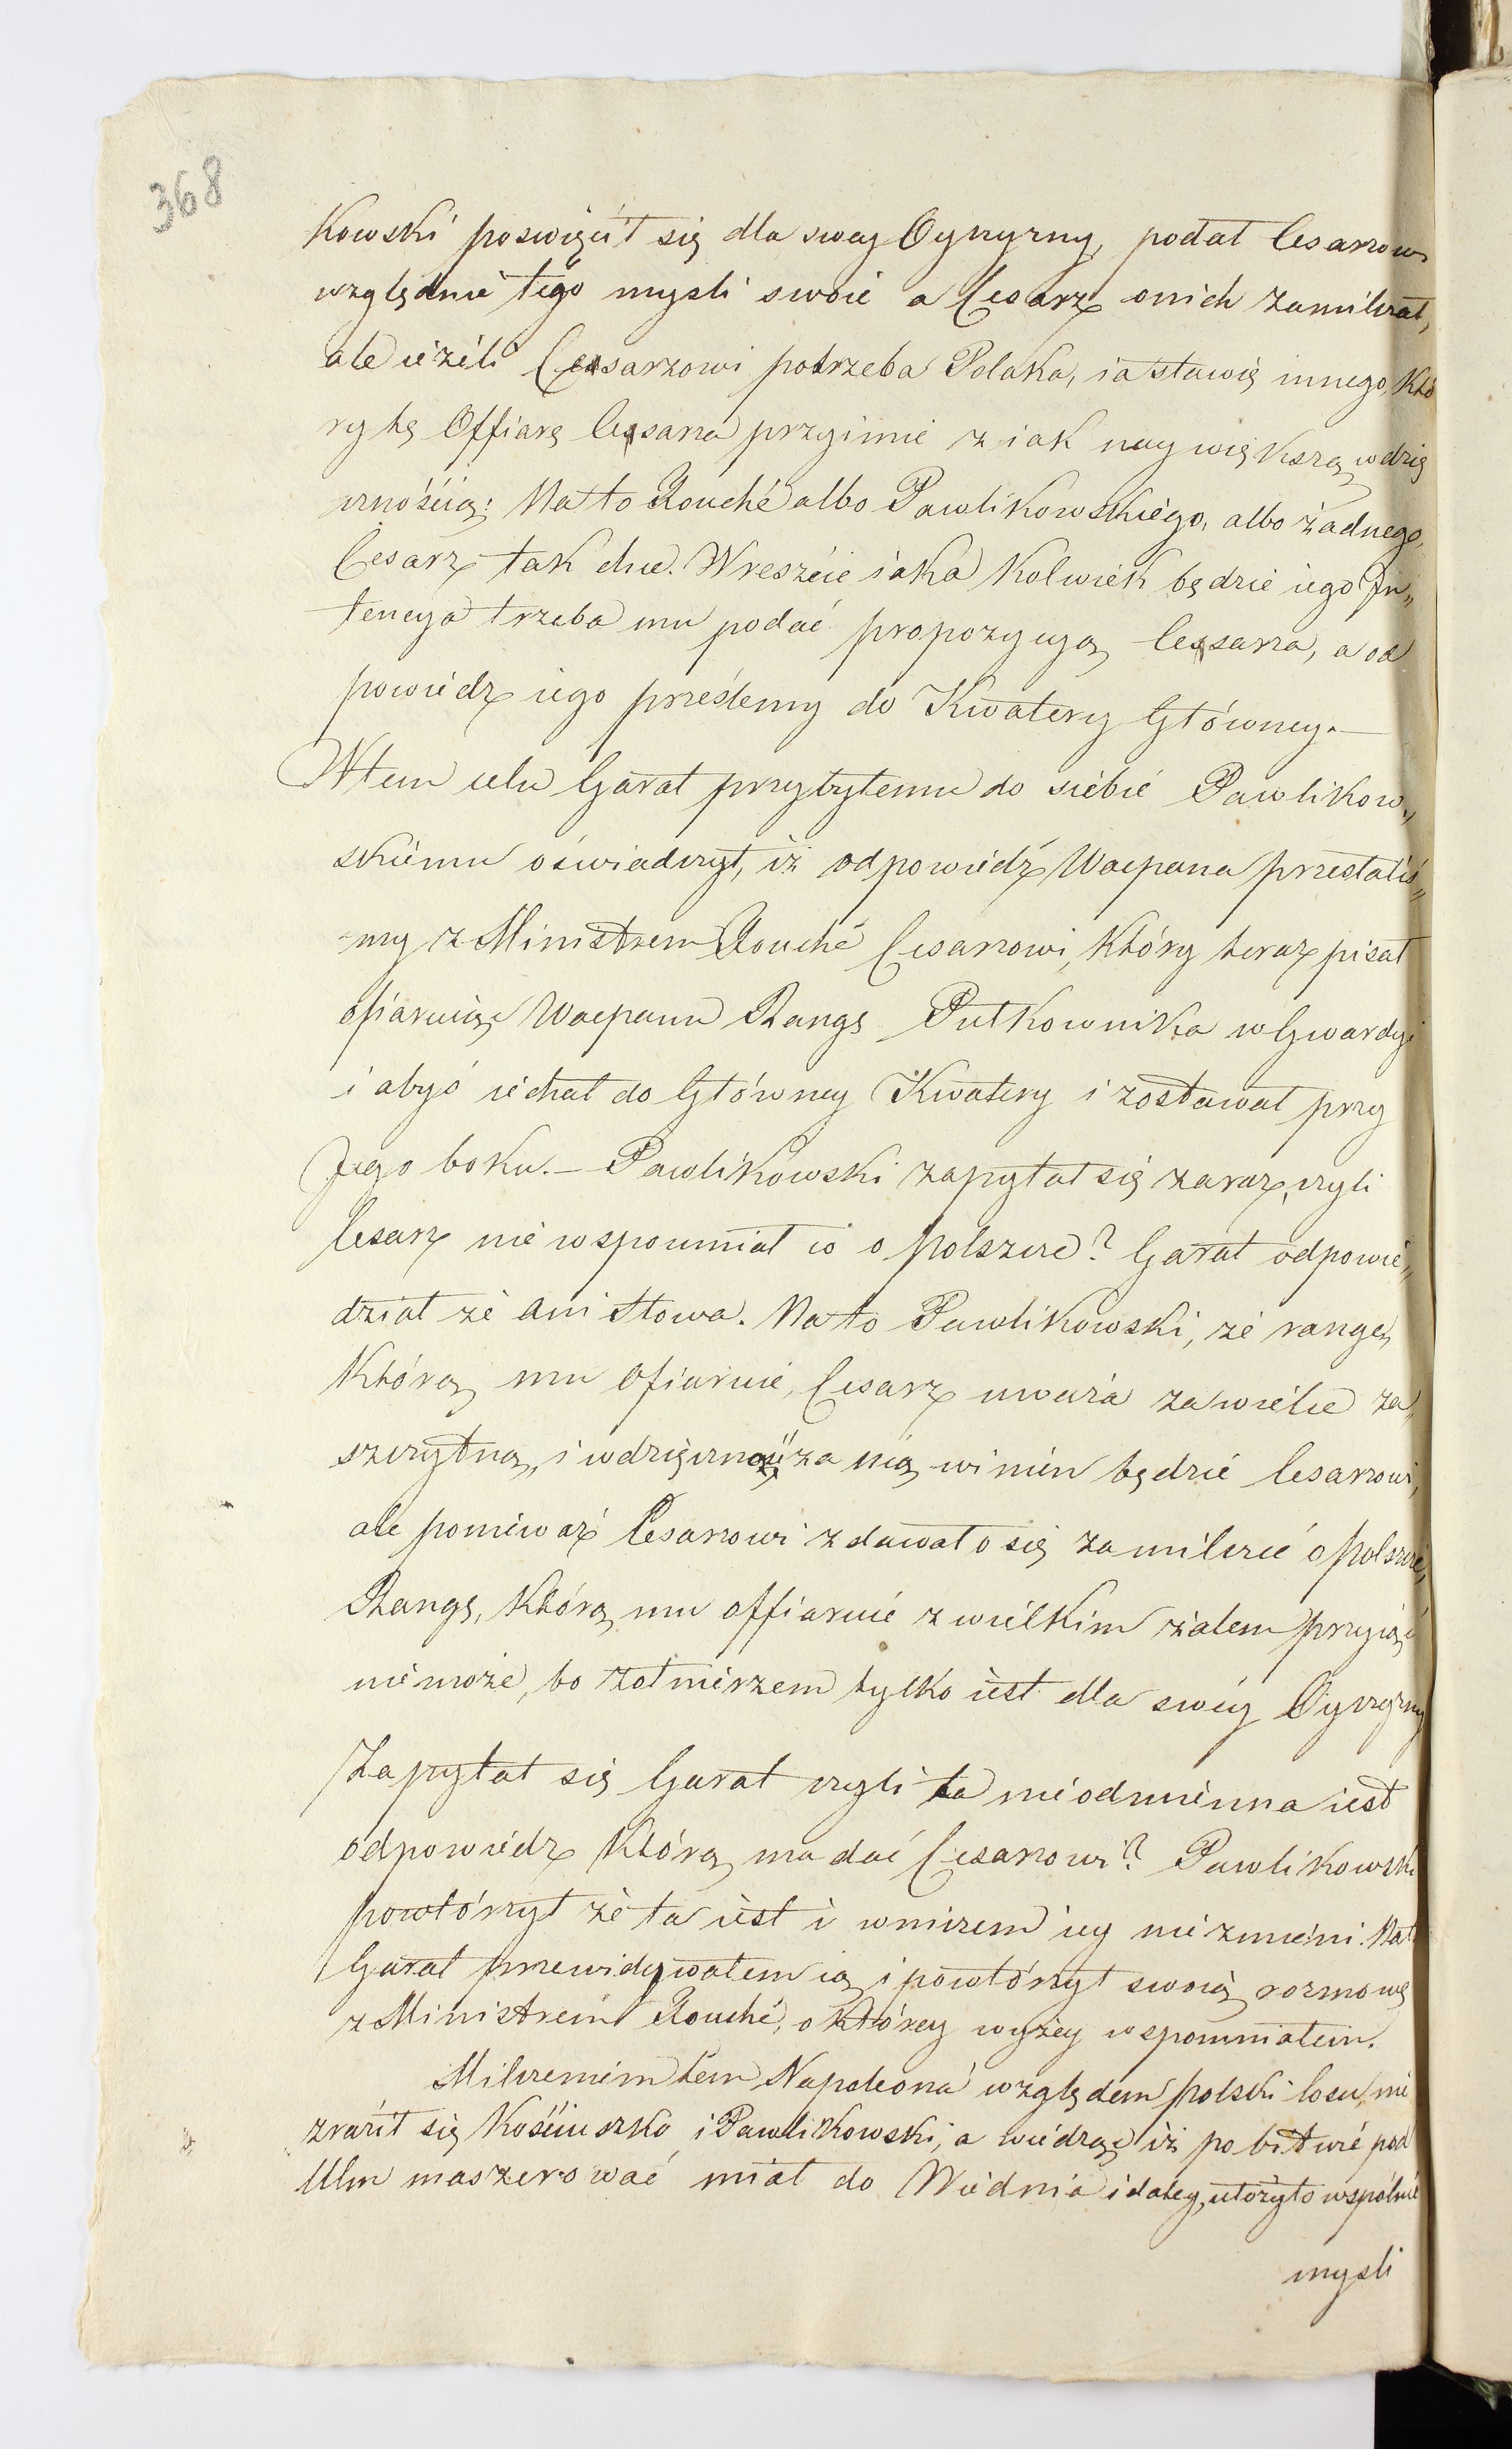 368
Kowski poswięcił się dla swey Oyczyzny, podał Cesarzowi
względnie tego mysli swoie a Cesarz onich zamilczał,
ale ieżeli Cesarzowi potrzeba Polaka, ia stawię innego, Któ
ry tę Offiarę Cesarza przyimie z iak naywiększą wdzię
cznością; Na to Fouché albo Pawlikowskiego, albo żadnego,
Cesarz tak chce. Wreszcie iaka Kolwiek będzie iego In„
tencya trzeba mu podać propozycyą Cesarza, a od
powiedz iego prześlemy do Kwatery Główney.—
Wtem celu Garat przybyłemu do siebie Pawlikow„
skiemu oświadczył, iż odpowiedź Wacpana przesłaliś„
my z Ministrem Fouché Cesarzowi, Który teraz pisał
ofiaruiąc Wacpanu Rangę Pułkownika w Gwardyi
i abyś iechał do Główney Kwatery i zostawał przy
Jego boku.— Pawlikowski zapytał się zaraz, czyli
Cesarz nie wspomniał co o polszcze? Garat odpowie„
dział że ani słowa. Na to Pawlikowski, że rangę,
Którą mu ofiaruie, Cesarz uważa za wielce za„
szczytną, i wdzięczność za nią winien będzie Cesarzowi,
ale ponieważ Cesarzowi zdawało się zamilczeć o polszcze,
Rangę, Którą mu offiaruie z wielkim żalem przyiąć
nie może, bo żołnierzem tylko iest dla swéy Oyczyzny
Zapytał się Garat czyli ta nieodmienna iest
odpowiedz Którą ma dać Cesarzowi? Pawlikowski
powtórzył że ta iest i wniczem iey nie zmieni. Nato
Garat przewidywałem ią, i powtórzył swoią rozmowę
z Ministrem Fouché, o Którey wyżey wspomniałem.
Milczeniem tem Napoleona względem polski losu, nie
zraził się Kościuszko i Pawlikowski, a wiedząc iż po bitwie pod
Ulm maszerować miał do Wiednia i daley, ułożyło wspólnie
mysli